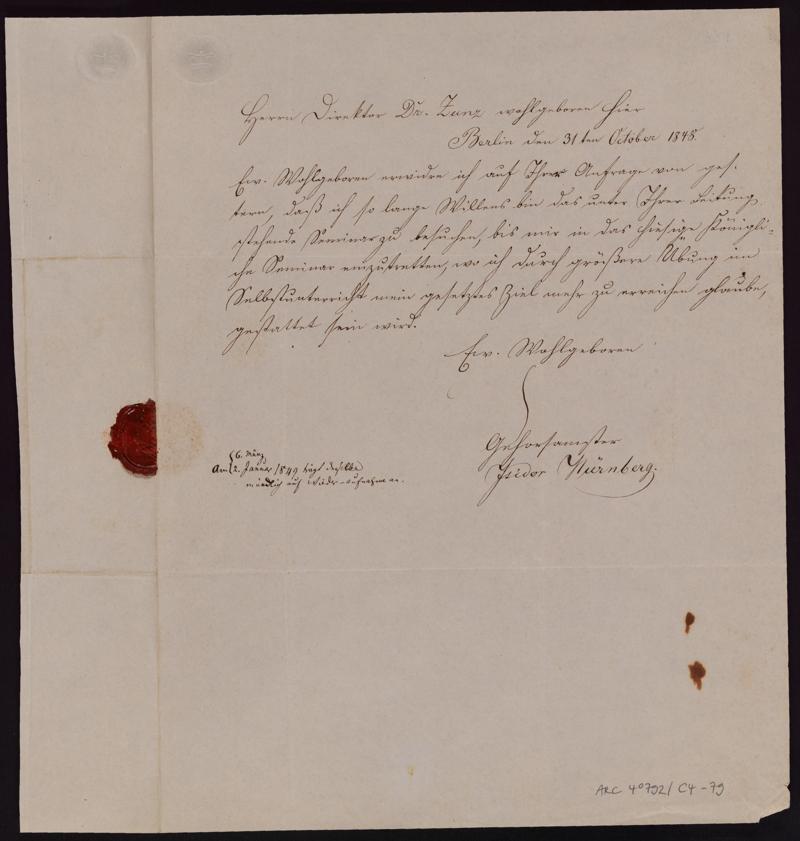 Herrn Direktor Dr. Zunz wohlgeboren hier
Berlin den 31ten October 1848.
Ew. Wohlgeboren erwidre ich auf Ihre Anfrage von ges-
tern, daß ich so lange Willens bin das unter Ihrer Leitung
stehende Seminar zu besuchen, bis mir in das hiesige Königli-
che Seminar einzutretten, wo ich durch größere Übung im
Selbstunterricht mein gesetztes Ziel mehr zu erreichen glaube,
gestattet sein wird.
Ew. Wohlgeboren
Gehorsamster
Isidor Nürnberg.
6. März
Am 2. Januar 1849 trägt derselbe
mündlich auf Wieder-aufnahme an.
ARC 4°792/C4-79